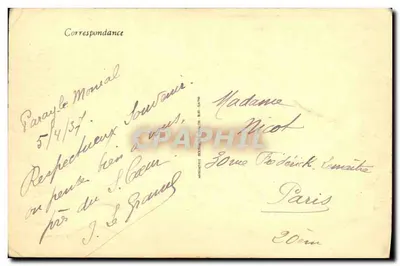 Correspondance
Paray le Monial
5/4/37
Respectueux Souvenir.
on pense bien à vous,
près du S. Cœur.
J. Le Grand
Madame
Nicot
30 rue Frédérick Lemaître
Paris
20èm
CPAPHIL